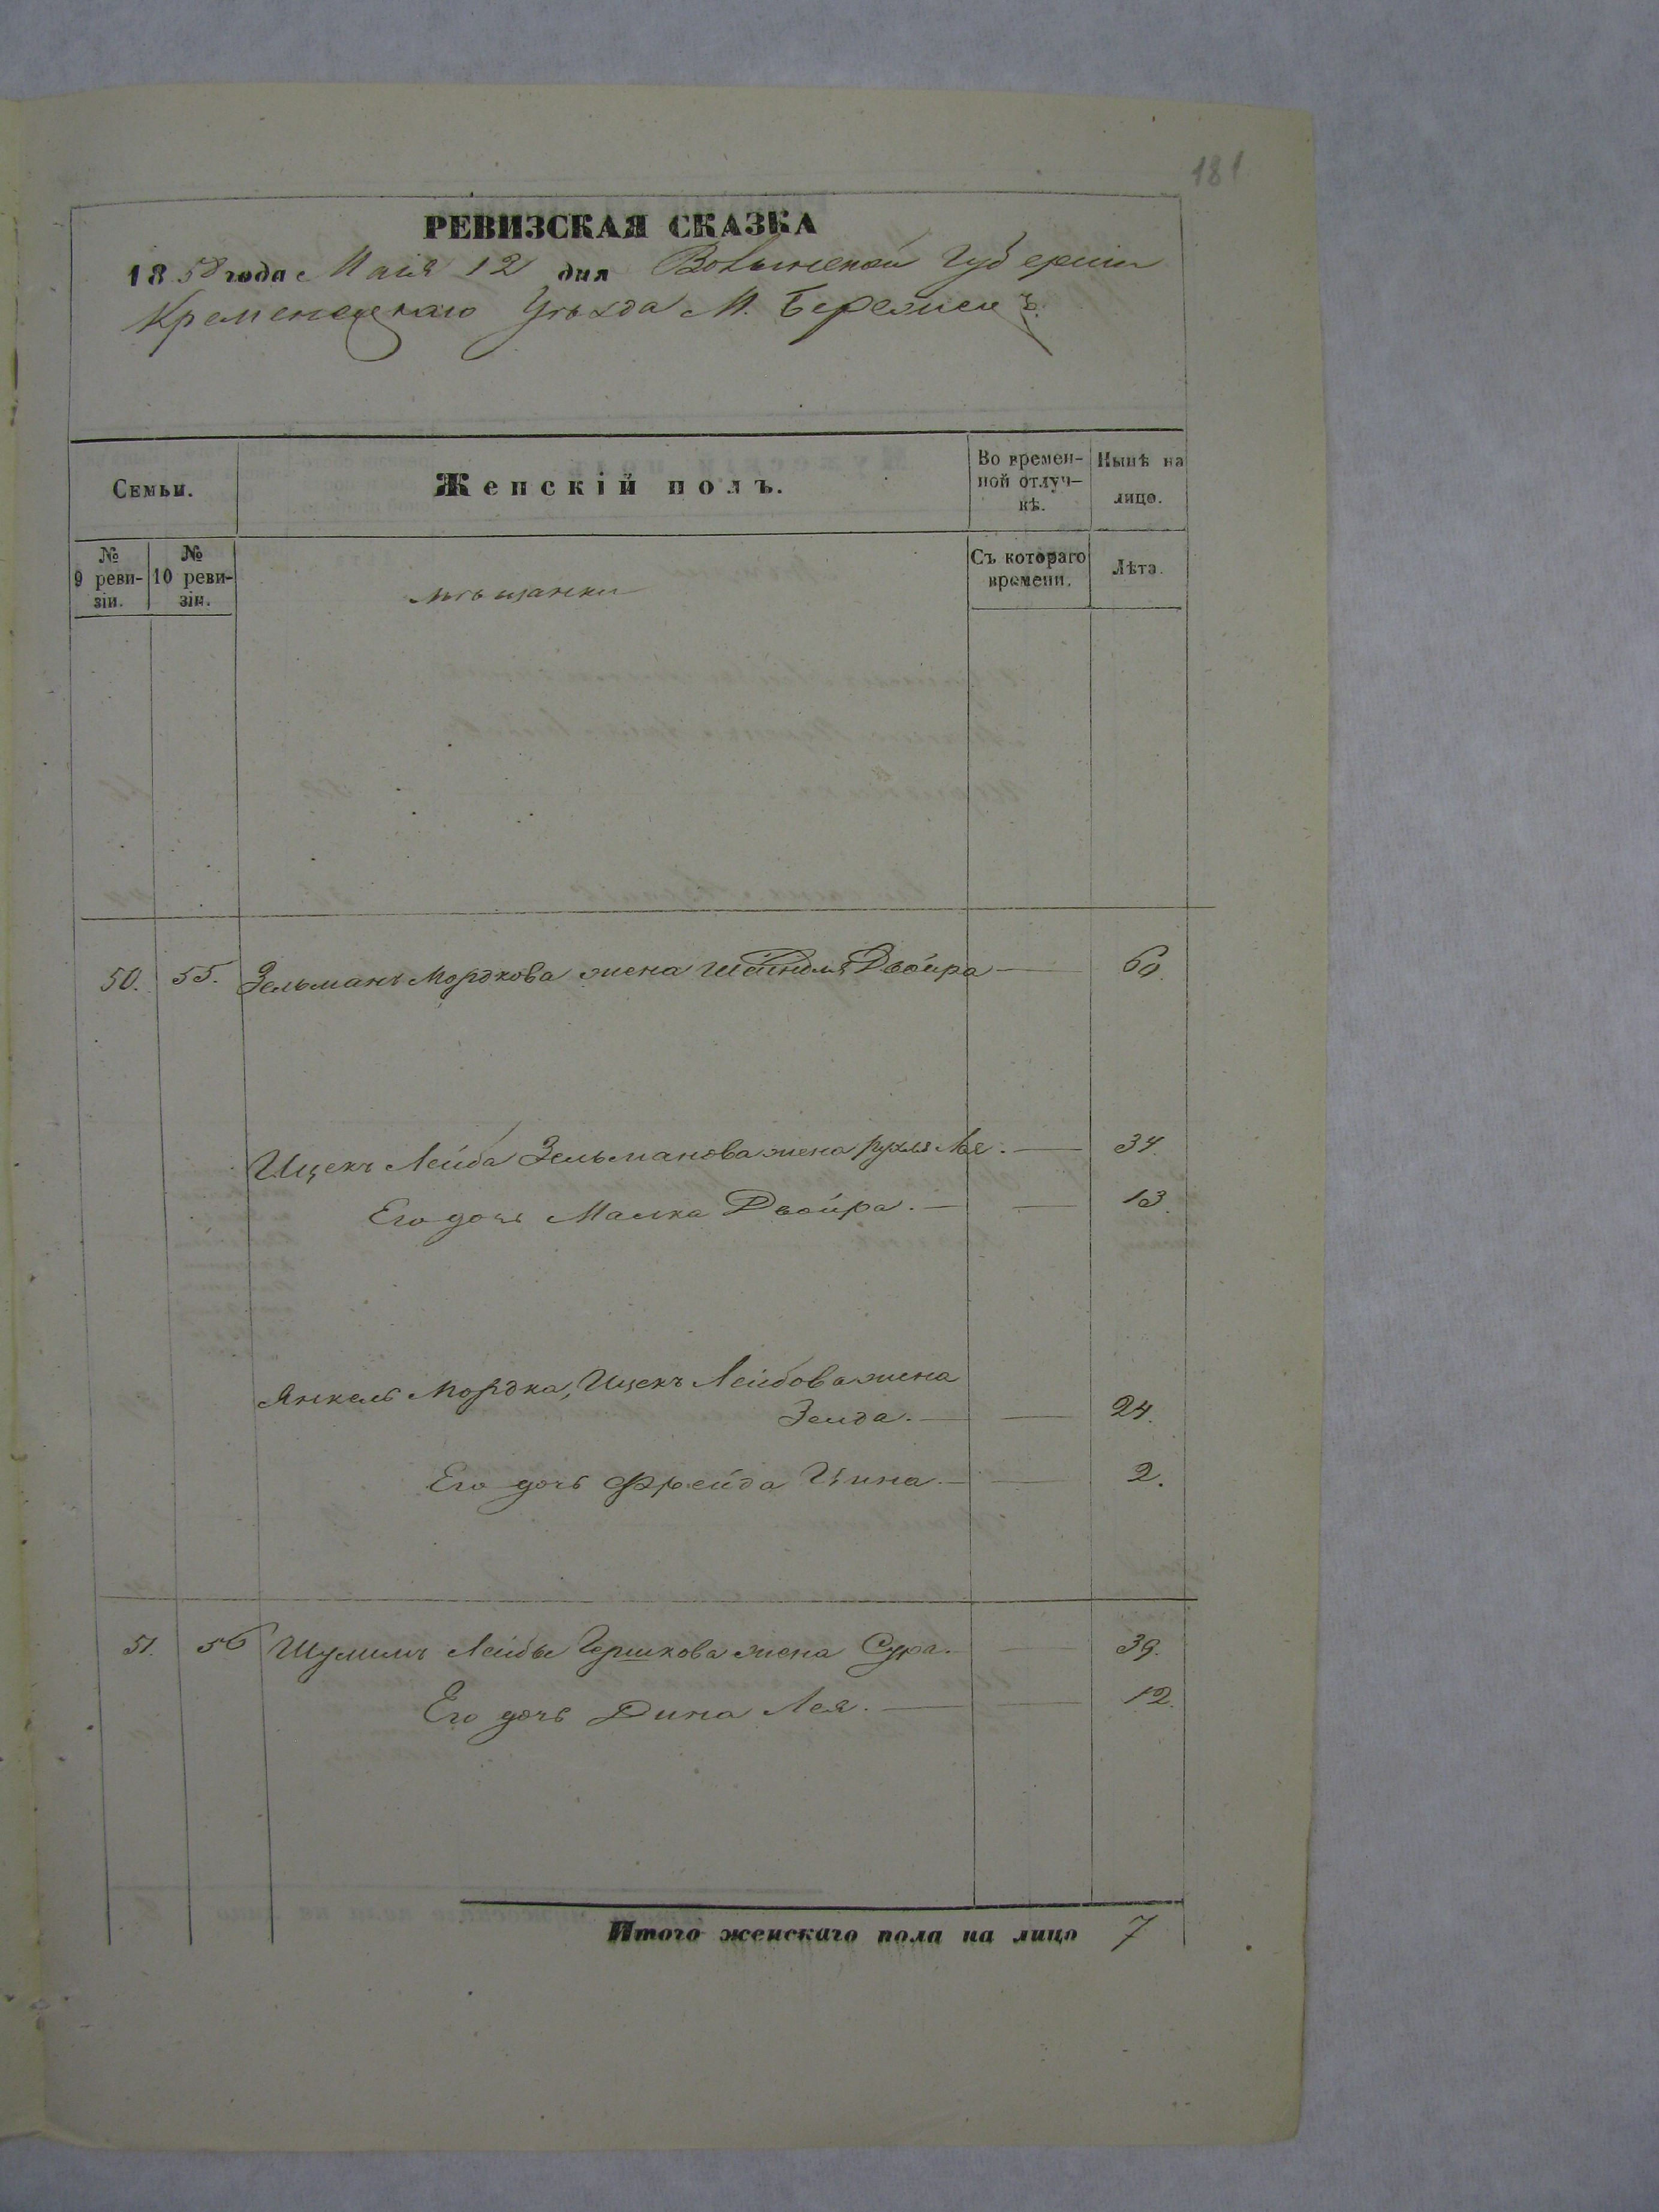 181
РЕВИЗСКАЯ СКАЗКА
1858 года Маія 12 дня Волынской Губерніи
Кременецкаго Уѣзда М. Бережецъ
Семьи.
Женскій полъ.
Во времен-
ной отлуч-
кѣ.
Нынѣ на
лицо.
№
9 реви-
зіи.
№
10 реви-
зіи.
Съ котораго
времени.
Лѣта.
мѣщанки
50. 55. Зельманъ Мордкова жена Шейндля Двойра — 60.
Ицекъ Лейба Зельманова жена Рухля Лея. — 34.
Его дочь Малка Двойра. — — 13.
Янкель Мордка, Ицекъ Лейбова жена
Зелда. — — 24.
Его дочь Фрейда Цина — — 2.
51. 56 Шулимъ Лейбы Гершкова жена Сура. — 39.
Его дочь Дина Лея. — — 12.
Итого женскаго пола на лицо 7